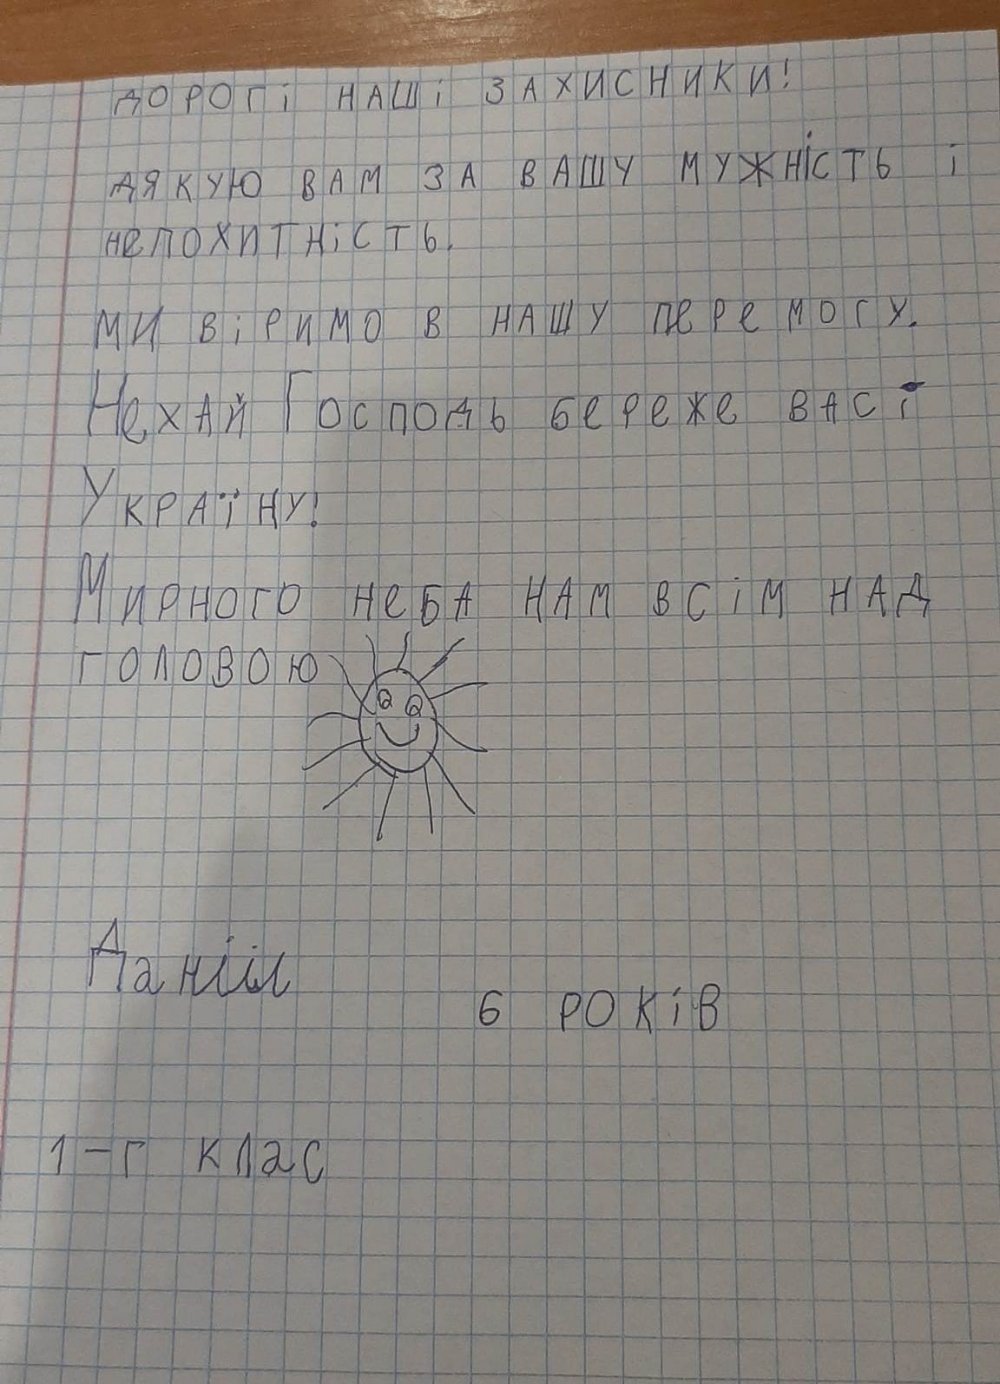 ДОРОГІ НАШІ ЗАХИСНИКИ!
ДЯКУЮ ВАМ ЗА ВАШУ МУЖНІСТЬ І
НЕПОХИТНІСТЬ.
МИ ВІРИМО В НАШУ ПЕРЕМОГУ.
НЕХАЙ ГОСПОДЬ БЕРЕЖЕ ВАС І
УКРАЇНУ!
МИРНОГО НЕБА НАМ ВСІМ НАД
ГОЛОВОЮ
Даніїл
6 РОКІВ
1-г клас